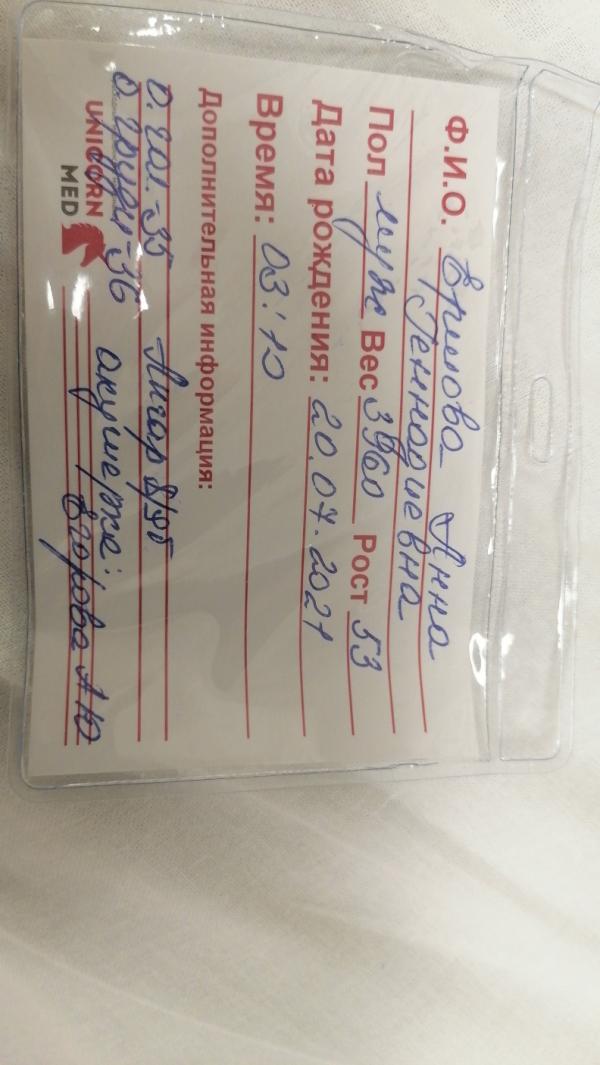 Ф.И.О. Ермова Анна
Геннадиевна
Пол муж Вес 3960 Рост 53
Дата рождения: 20.07.2021
Время: 03:10
Дополнительная информация:
о. гол.-35 Апгар 8/9б
о. груди-36 акушерка:
UNICORN
MED
Егорова А Ю